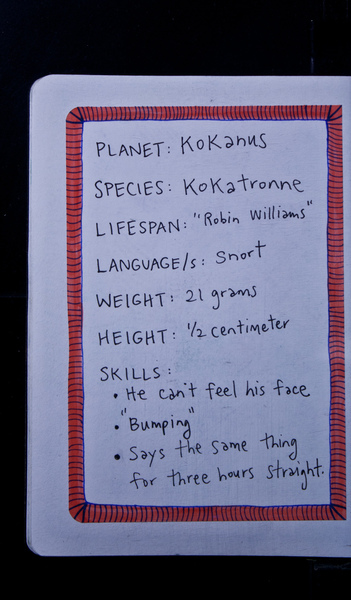 PLANET: KoKanus
SPECIES: KoKatronne
LIFESPAN: "Robin Williams"
LANGUAGE/s: Snort
WEIGHT: 21 grams
HEIGHT: 1/2 centimeter
SKILLS:
• He can't feel his face
• "Bumping"
• Says the same thing
for three hours straight.